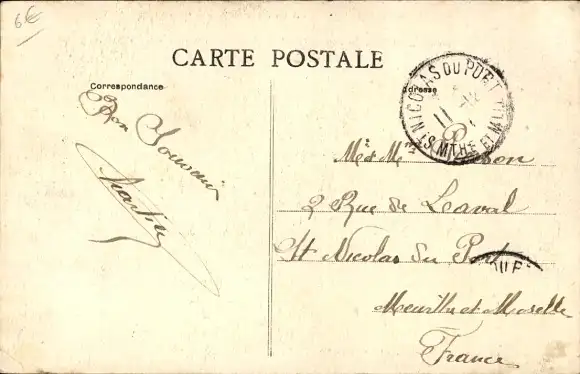 6€
CARTE POSTALE
Correspondance
Adresse
Bon Souvenir
Martin
ST NICOLAS DU PORT
MTHE ET M
11 -12
Mr et Mme
2 Rue de Laval
St Nicolas du Port
Meurthe et Moselle
France